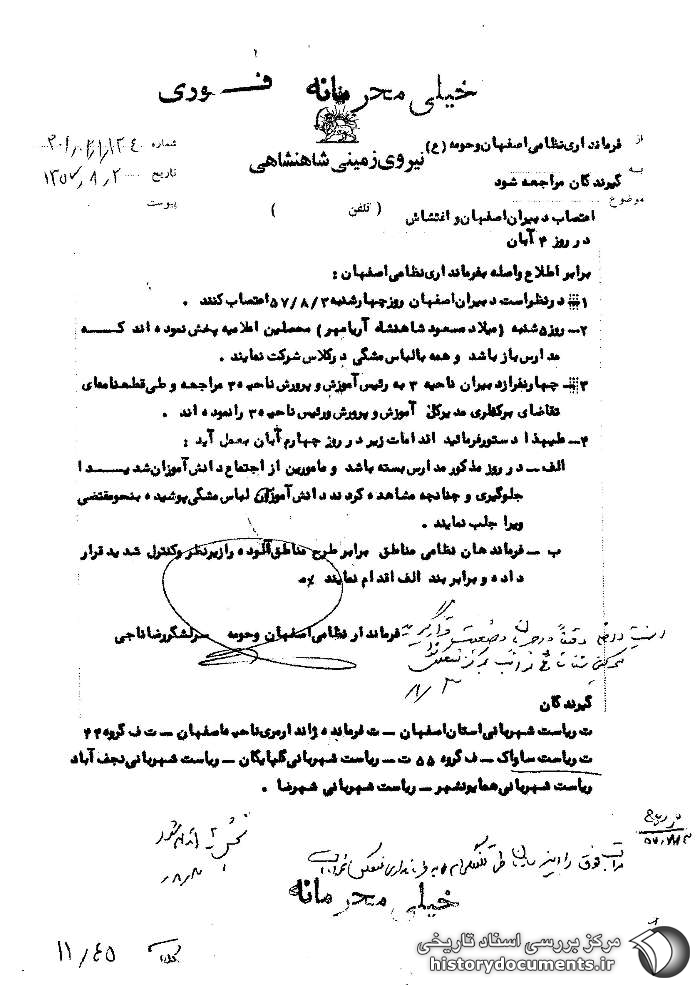 ۱
خیلی محرمانه فوری
از فرمانداری نظامی اصفهان و حومه (ع)
نیروی زمینی شاهنشاهی
شماره
به گیرندگان مراجعه شود
تاریخ ۱۳۵۷/۸/۲
موضوع
پیوست
( تلفن )
اعتصاب دبیران اصفهان و اغتشاش
در روز ۴ آبان
برابر اطلاع واصله بفرمانداری نظامی اصفهان :
۱- در نظر است دبیران اصفهان روز چهارشنبه ۵۷/۸/۳ اعتصاب کنند .
۲- روز ۵ شنبه (میلاد مسعود شاهنشاه آریامهر) محصلین اعلامیه پخش نموده اند که
مدارس باز باشد و همه بالباس مشگی در کلاس شرکت نمایند .
۳- چهارنفر از دبیران ناحیه ۳ به رئیس آموزش و پرورش ناحیه ۳ مراجعه و طی قطعنامه‌ای
تقاضای برکناری مدیرکل آموزش و پرورش و رئیس ناحیه ۳ را نموده اند .
۴- علیهذا دستور فرمائید اقدامات زیر در روز چهارم آبان بعمل آید :
الف - در روز مذکور مدارس بسته باشد و مامورین از اجتماع دانش آموزان شدیدا
جلوگیری و چنانچه مشاهده کردند دانش آموزان لباس مشگی پوشیده بنحو مقتضی
ویرا جلب نمایند .
ب - فرماندهان نظامی مناطق برابر طرح مناطق آلوده را زیر نظر و کنترل شدید قرار
داده و برابر بند الف اقدام نمایند
فرماندار نظامی اصفهان و حومه سرلشگر رضا ناجی
گیرندگان
ت ریاست شهربانی استان اصفهان - ت فرمانده ژاندارمری ناحیه اصفهان - ت ف گروه ۴۴
ت ریاست ساواک - ف گروه ۵۵ ت - ریاست شهربانی گلپایگان - ریاست شهربانی نجف آباد
ریاست شهربانی همایونشهر - ریاست شهربانی شهرضا .
خیلی محرمانه
۱۱/۴۵
مرکز بررسی اسناد تاریخی
historydocuments.ir